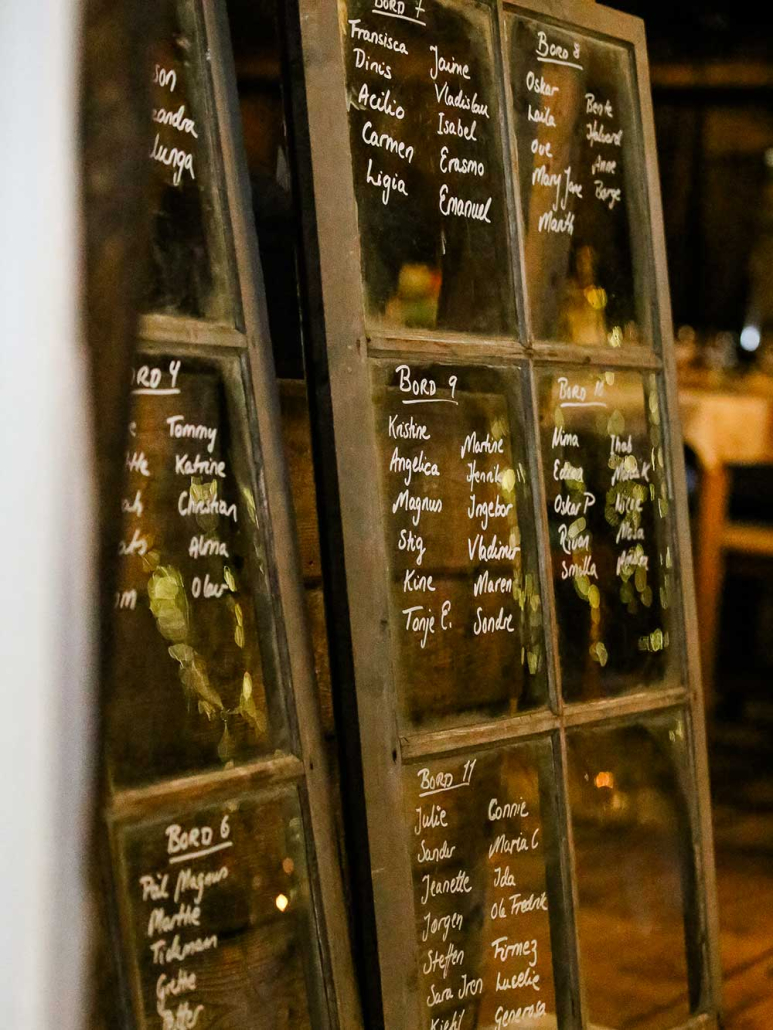 son
andra
unga
BORD 4
Tommy
Katrine
Christian
Alma
Olav
BORD 6
Pål Magnus
Marthe
Tidemann
Grethe
BORD 7
Fransisca
Dinis
Acilio
Carmen
Ligia
Jaime
Vladislau
Isabel
Erasmo
Emanuel
BORD 8
Oskar
Laila
Ove
Mary Jane
Marith
Bente
Halvard
Anne
Børge
BORD 9
Kristine
Angelica
Magnus
Stig
Kine
Tonje E.
Martine
Henrik
Ingebor
Vladimir
Maren
Sondre
BORD 10
Nima
Oskar P
Smilla
Thal
BORD 11
Julie
Sander
Jeanette
Jørgen
Steffen
Sara Iren
Kjehl
Connie
Maria C
Ida
Ola Fredrik
Firmez
Lucelie
Generosa